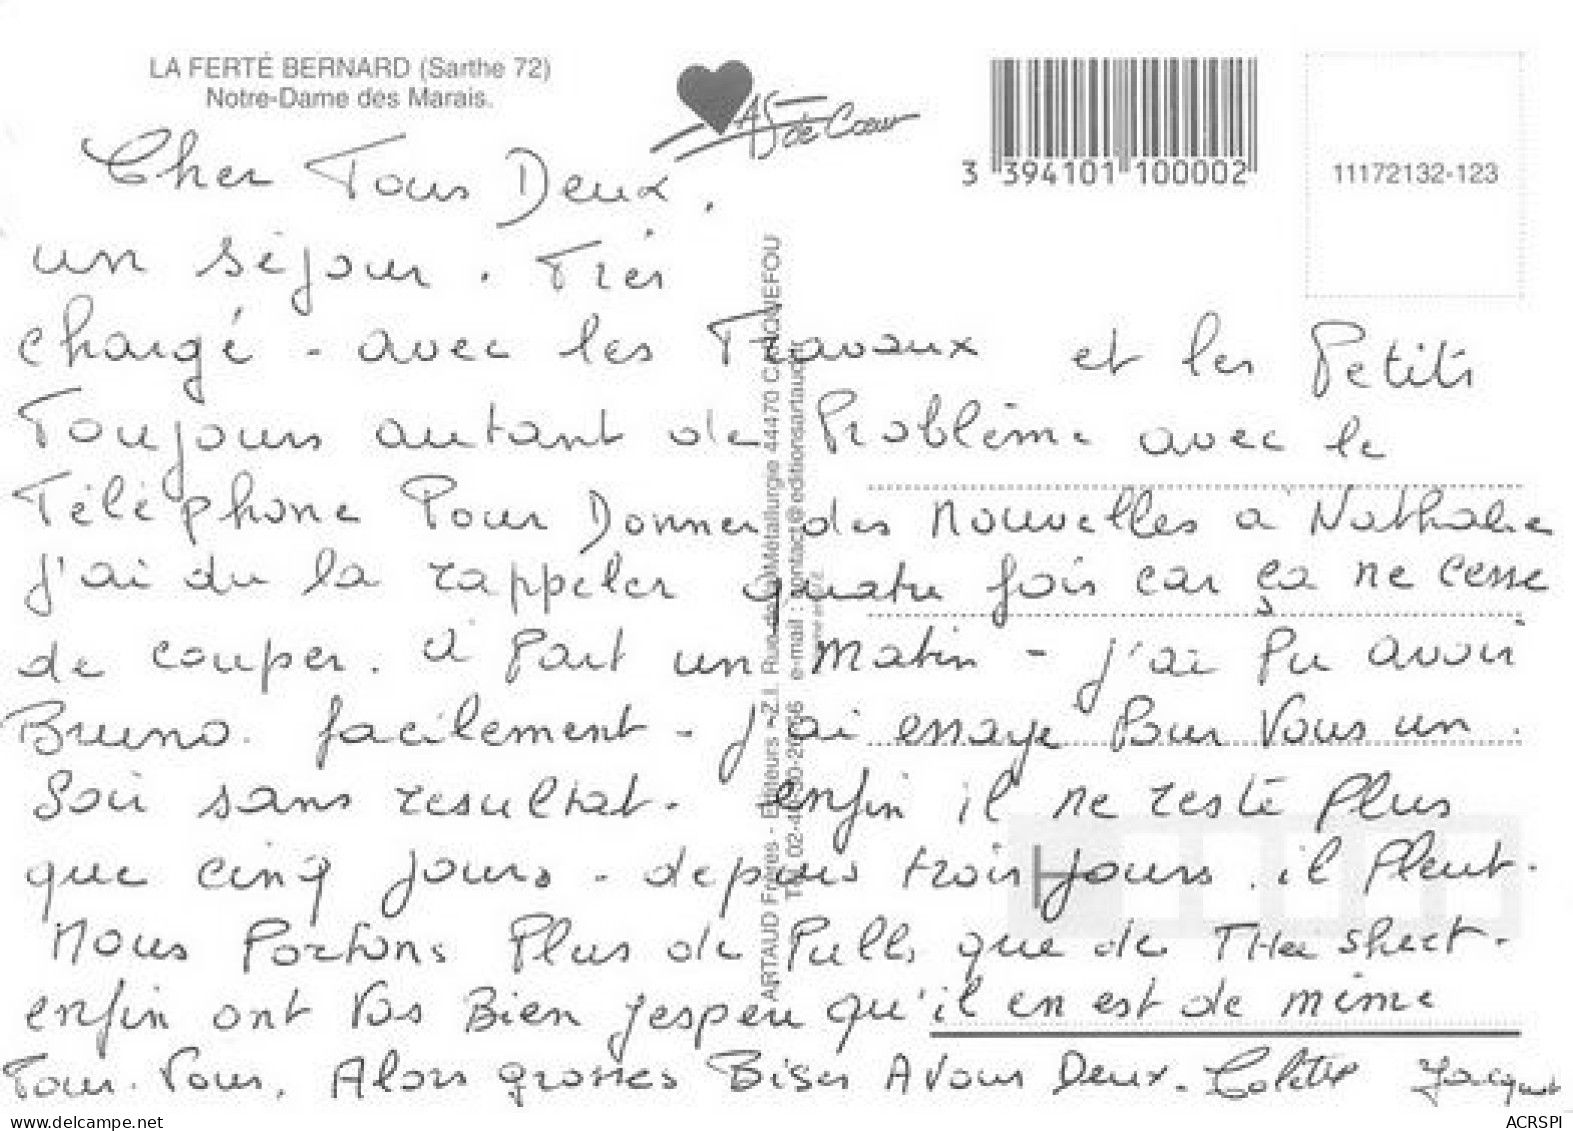 LA FERTÉ BERNARD (Sarthe 72)
Notre-Dame des Marais.
AS de Cœur
3 394101 100002
11172132-123
Cher Tous Deux,
un séjour. Très
chargé - avec les Travaux et les Petits
Toujours autant de Problème avec le
Téléphone Pour Donner des Nouvelles à Nathalie
j'ai du la rappeler quatre fois car ça ne cesse
de couper. à Part un Matin - j'ai Pu avoir
Bruno. facilement - j'ai essaye Pour Vous un
Soir sans resultat. enfin il ne reste Plus
que cinq jours - depuis trois jours. il Pleut.
Nous Portons Plus de Pulls que de Thee shect.
enfin ont Vas Bien j'espere qu'il en est de même
Pour Vous, Alors grosses Bises A Vous Deux - Colette Jacques
ARTAUD Frères - Editeurs - Z.I. Rue de la Métallurgie 44470 CARQUEFOU
e-mail : contact@editionsartaud.fr
ACRSPI